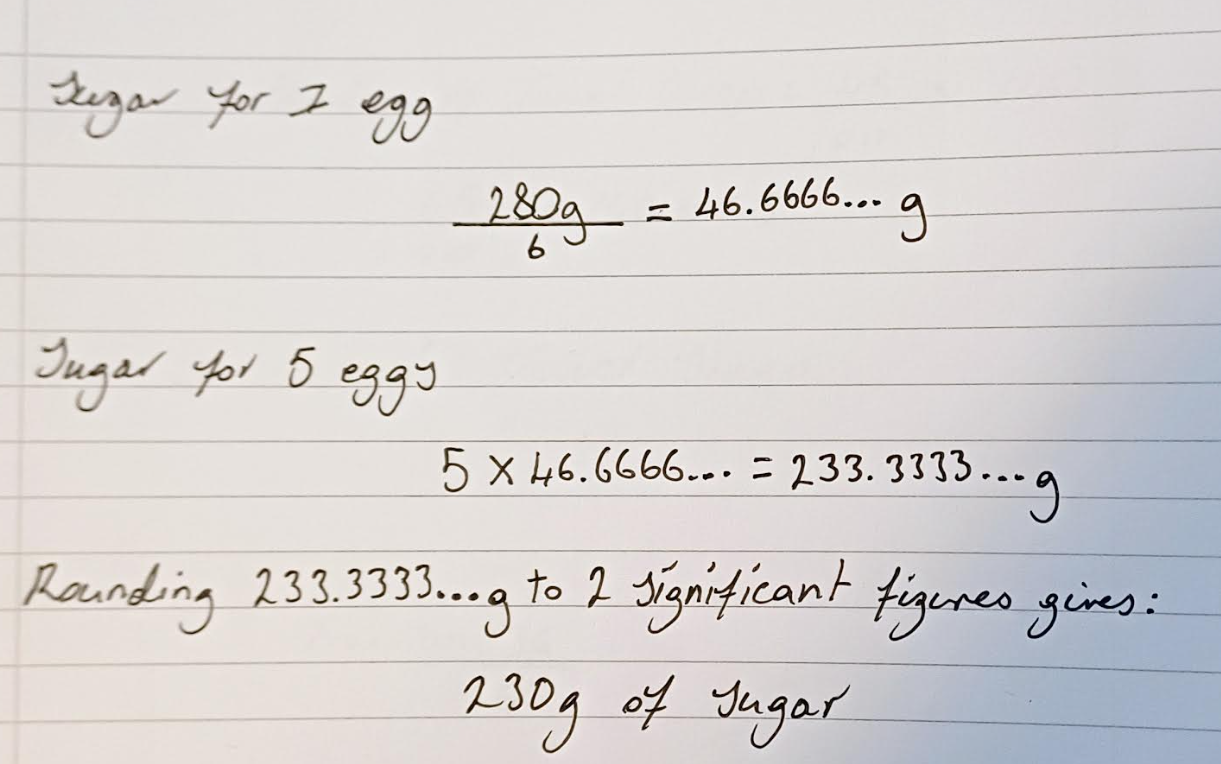 Sugar for 1 egg
280g
6
= 46.6666... g
Sugar for 5 eggs
5 × 46.6666... = 233.3333...g
Rounding 233.3333...g to 2 significant figures gives:
230g of sugar